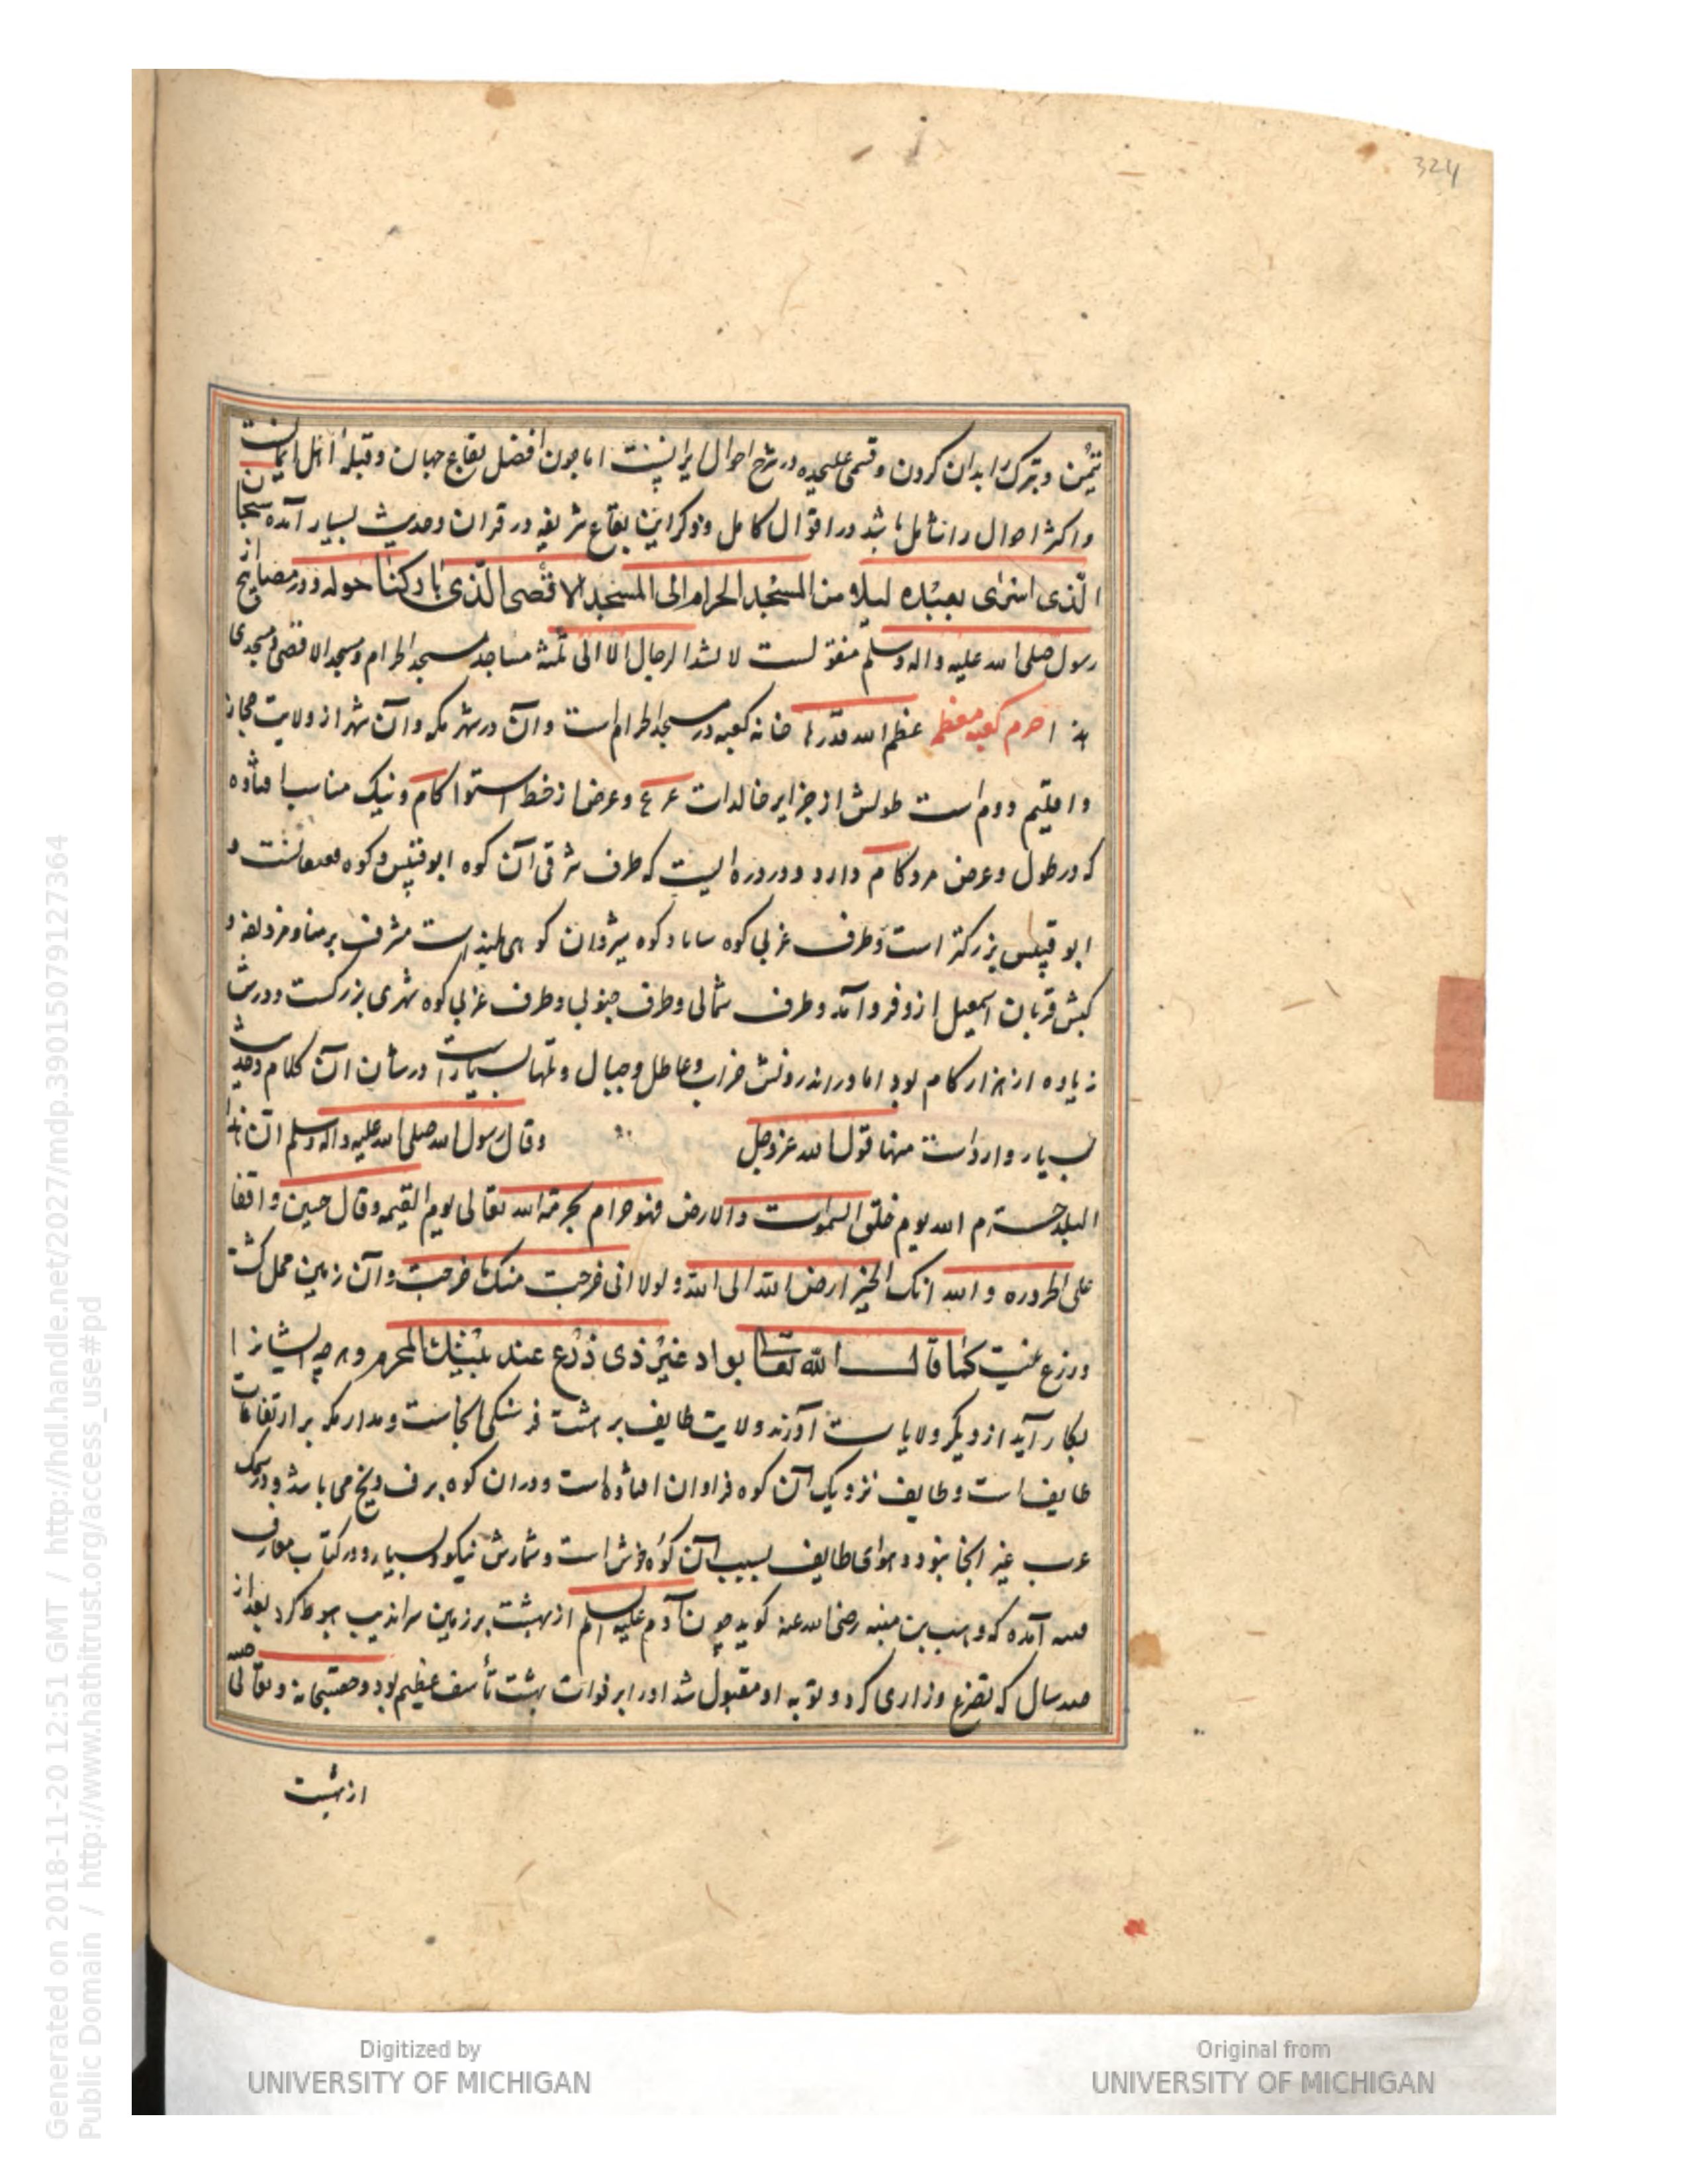 324
تیمن و تبرک را بدان کردن و قسمی علیحده در شرح احوال ایرانست اما چون افضل بقاع جهان و قبله اهل ایمانست
و اکثر احوال را شامل باشد در اقوال کامل و ذکر این بقاع شریفه در قران و حدیث بسیار آمده سبحان
الّذی اسْرٰی بعبْده لیلا من المسْجد الحرام الی المسْجد الاقْصی الّذی بارکنا حوله و در مصابیح از
رسول صلی الله علیه واله وسلم منقولست لا تشد الرحال الا الی ثلثه مساجد مسجد الحرام و مسجد الاقصی و مسجدی
هذا حرم کعبه معظم عظم الله قدرها خانه کعبه در مسجد الحرام است و آن در شهر مکه و آن شهر از ولایت حجاز
و اقلیم دوم است طولش از جزایر خالدات و عرض از خط استوا کام و نیک مناسب افتاده
که در طول و عرض دارد و در دره ایست که طرف شرقی آن کوه ابوقبیس و کوه و
ابو قبیس بزرکتر است و طرف غربی کوه کوه کوهی بلند است مشرف بر منا و مزدلفه و
کبش قربان اسمعیل ازو فرو آمد و طرف شمالی و طرف جنوبی و طرف غربی کوه شهری بزرکست و دورش
زیاده از هزار کام بود اما در اندرونش خراب و عاطل و جبال و تلها بسیار است در شان آن کلام و حدیث
بسیار وارد است منها قول الله عز وجل وقال رسول الله صلی الله علیه واله وسلم ان هذا
البلد حرم الله یوم خلق السموات والارض فهو حرام بحرمة الله تعالی یوم القیمه وقال حین واقفا
علی الحروره والله انک لخیر ارض الله الی الله ولولا انی خرجت منک ما خرجت و آن زمین محل کشت
و زرع نیست کما قال الله تعالی بواد غیْر ذی ذرْع عند بیْتک المحرم و هر چه ایشانرا
بکار آید از دیکر ولایات آورند ولایت طایف بر هشت فرسنکی انجاست و مدار مکه بر ارتفاعات
طایف است و طایف نزدیک آن کوه فراوان افتاده است و در ان کوه برف و یخ می باشد و در ملک
عرب غیر انجا نبود و هوای طایف بسبب آن کوه خوش است و ثمارش نیکو و بسیار و در کتاب معارف
آمده که وهب بن منبه رضی الله عنه کوید چون آدم علیه السلم از بهشت بر زمین سراندیب هبوط کرد بعد از
صد سال که تضرع و زاری کرد و توبه او مقبول شد او را بر فوات بهشت تأسف عظیم بود و حقسبحانه و تعالی
از بهشت
Generated on 2018-11-20 12:51 GMT / http://hdl.handle.net/2027/mdp.39015079127364
Public Domain / http://www.hathitrust.org/access_use#pd
Digitized by
UNIVERSITY OF MICHIGAN
Original from
UNIVERSITY OF MICHIGAN